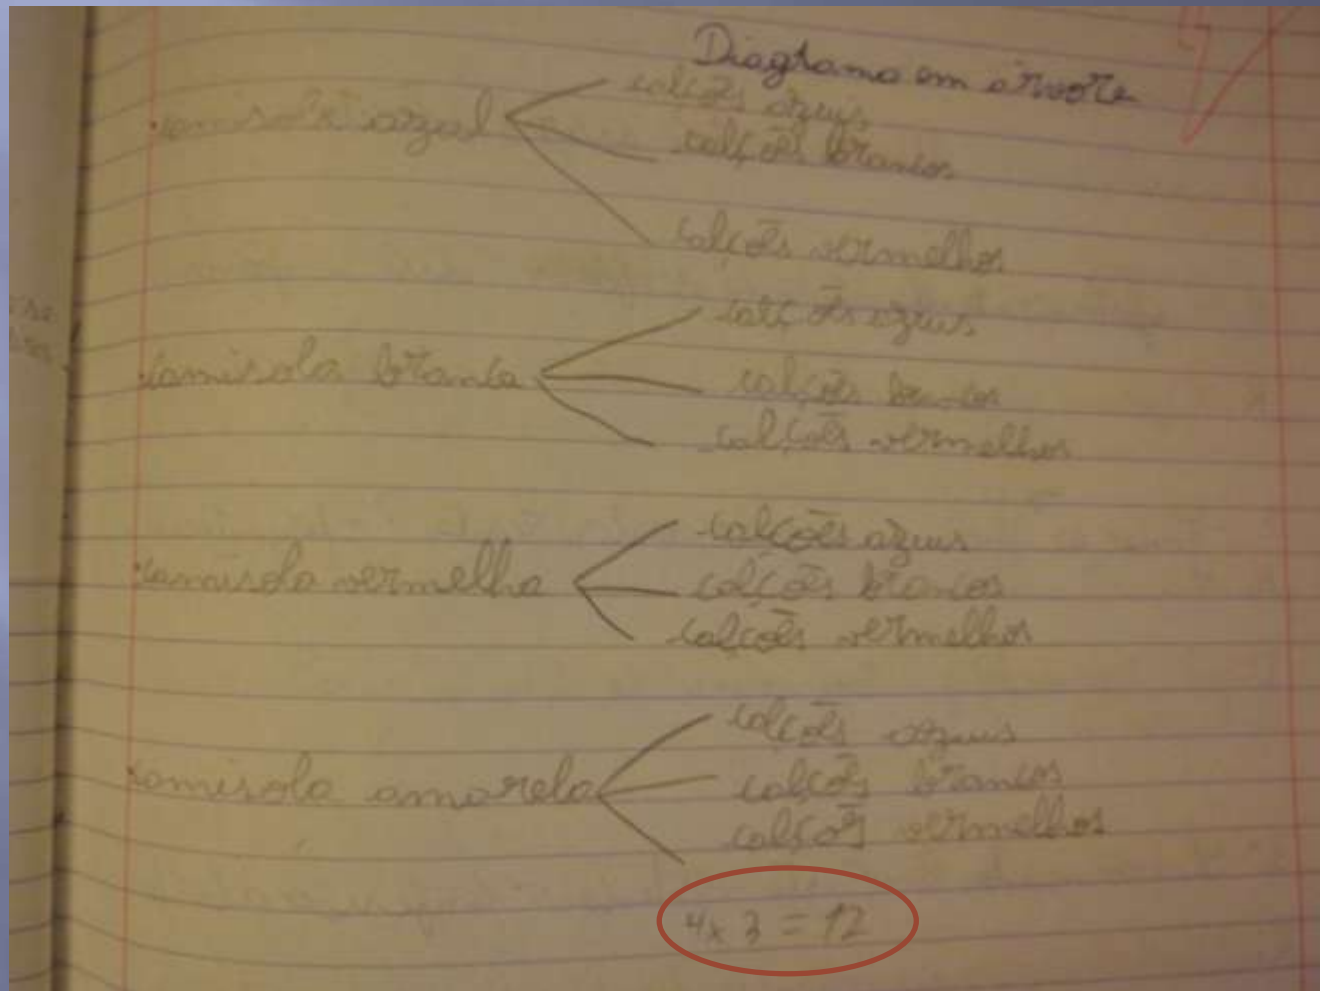 Diagrama em árvore
camisola azul
calções azuis
calções brancos
calções vermelhos
camisola branca
calções azuis
calções brancos
calções vermelhos
camisola vermelha
calções azuis
calções brancos
calções vermelhos
camisola amarela
calções azuis
calções brancos
calções vermelhos
4x3 = 12